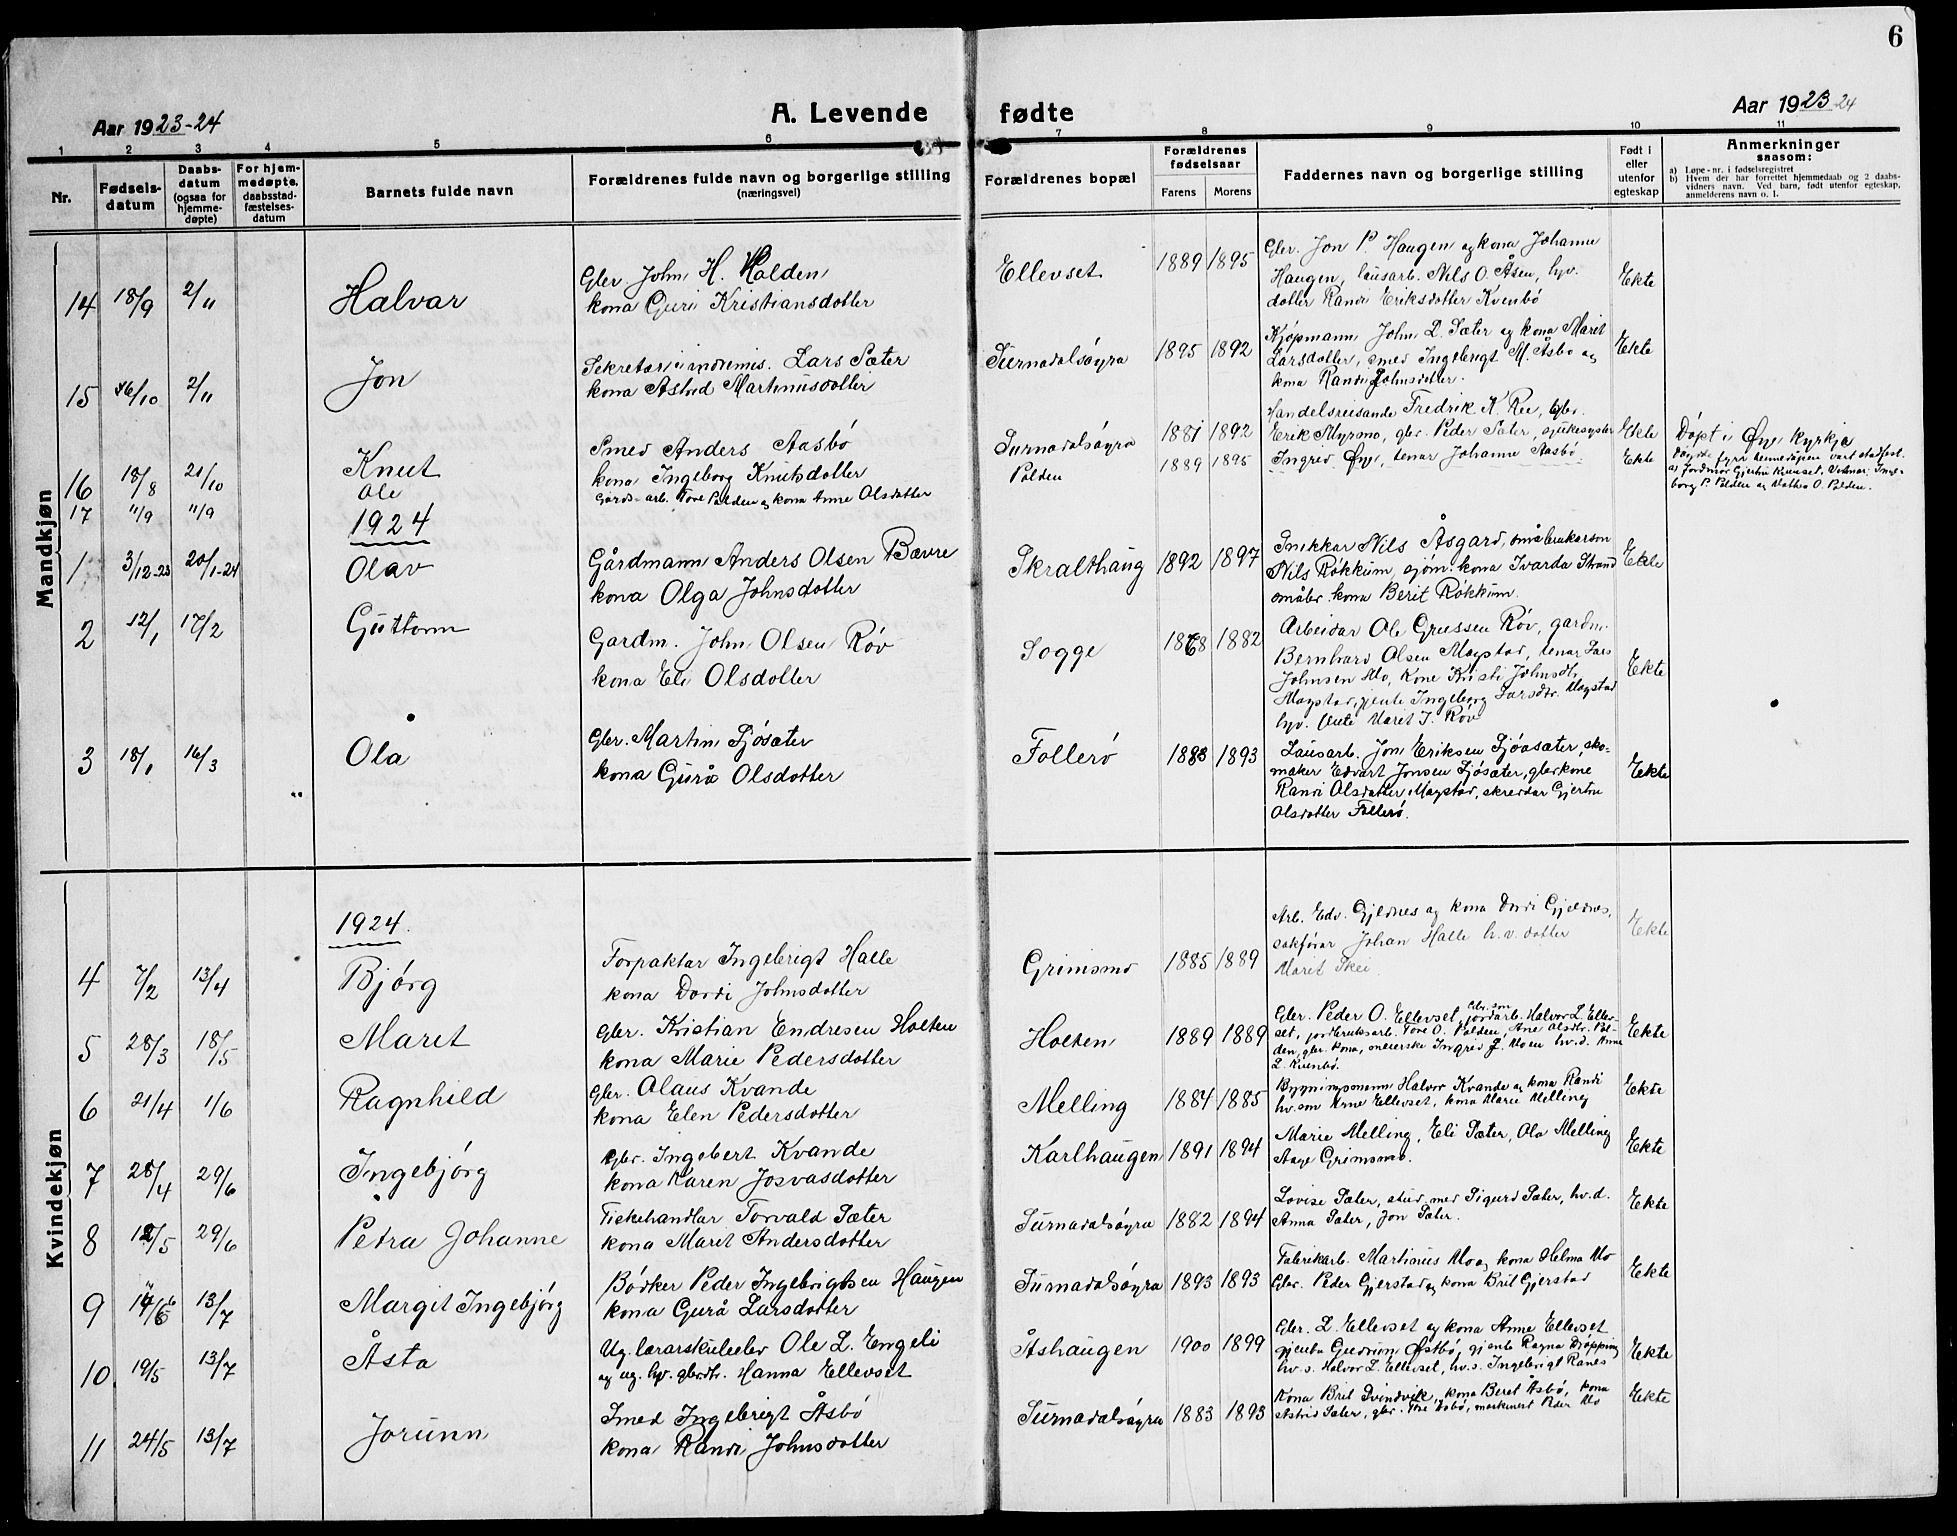 6
Aar 1923-24
A. Levende fødte
Aar 1923-24
1 2 3 4 5 6 7 8 9 10 11
Nr.
Fødsels-
datum
Daabs-
datum
(ogsaa for
hjemme-
døpte)
For hjem-
medøpte,
daabsstad-
fæstelses-
datum
Barnets fulde navn
Forældrenes fulde navn og borgerlige stilling
(næringsvei)
Forældrenes bopæl
Forældrenes
fødselsaar
Farens Morens
Faddernes navn og borgerlige stilling
Født i
eller
utenfor
egteskap
Anmerkninger
saasom:
a) Løpe-nr. i fødselsregistret
b) Hvem der har forrettet hjemmedaab og 2 daabs-
vidners navn. Ved barn, født utenfor egteskap,
anmelderens navn o. l.
Mandkjøn
14 18/9 2/11 Halvar
Gbr. John H. Halden
kona Guri Kristiansdotter
Ellevset 1889 1895
Gbr. Jon P. Haugen og kona Johanne
Haugen, lausarb. Nils O. Åsen, hv.
dotter Randi Eriksdotter Kvenbø
Ekte
15 16/10 2/11 Jon
Sekretær i indremis. Lars Sæter
kona Astrid Martinusdotter
Surnadalsøyra 1895 1892
Kjøpmann John L. Sæter og kona Marit
Larsdotter, smed Ingebrigt M. Åsbø og
kona Randi Johnsdotter.
Ekte
16 18/8 21/10 Knut
Smed Anders Aasbø
kona Ingeborg Knutsdotter
Surnadalsøyra 1881 1892
Handelsreisande Fredrik K. Ree, gbr.
Erik Myrmo, gbr. Peder Sæter, sjukesyster
Ingrid Øye, tenar Johanne Aasbø.
Ekte
Døpt i Øye kyrkja
17 11/9 11/9 Ole
Gards-arb. Tore Polden og kona Anne Olsdotter
Polden 1889 1895 Ekte
av Jordmor Gjertru Kvenset, Vitnar: Inge-
borg P. Polden og Mathea O. Polden.
1924
1 3/12-23 20/1-24 Olav
Gårdmann Anders Olsen Bævre
kona Olga Johnsdotter
Skralthaug 1892 1897
Snikkar Nils Åsgard, småbrukarson
Nils Røkkum, sjøm. kona Ivarda Strand
småbr. kona Berit Røkkum.
Ekte
2 12/1 17/2 Guttorm
Gardm. John Olsen Røv
kona Eli Olsdotter
Sogge 1868 1882
Arbeidar Ole Grussen Røv, gardm.
Bernhard Olsen Mogstad, tenar Lars
Johnsen Mo, Kone Kristi Johnsdtr
Mogstad, jente Ingeborg Larsdtr. Mogstad
hv. jente Marit J. Røv
Ekte
3 18/1 16/3 Ola
Gbr. Martin Sjøsæter
kona Gurå Olsdotter
Follerø 1883 1893
Lausarb. Jon Eriksen Sjøasæter, sko-
maker Edvart Jonsen Sjøsæter, gbrkone
Randi Olsdotter Mogstad, skreddar Gjertru
Olsdotter Follerø.
Ekte
Kvindekjøn
1924.
4 7/2 13/4 Bjørg
Forpaktar Ingebrigt Halle
kona Dordi Johnsdotter
Grimsmo 1885 1889
Arb. Edv. Gjeldnes og kona Dordi Gjeldnes,
sakførar Johan Halle h.v. dotter
Marit Skei.
Ekte
5 28/3 18/5 Marit
Gbr. Kristian Endresen Holten
kona Marie Pedersdotter
Holten 1889 1889
Gbr. Peder O. Ellevset, gbr.son jordarb. Halvor L. Ellev-
set, jordbruksarb. Tore O. Polden, Ane Olsdtr. Pol-
den, gbr. kona, meierske Ingrid J. Moen hv.d. Anne
L. Kvenbø.
Ekte
6 21/4 1/6 Ragnhild
Gbr. Olaus Kvande
kona Elen Pedersdotter
Melling 1884 1885
Bygningsmann Halvor Kvande og kona Randi
hv.son Arne Ellevset, kona Marie Melling
Ekte
7 28/4 29/6 Ingebjørg
Gbr. Ingebert Kvande
kona Karen Josvasdotter
Karlhaugen 1891 1894
Marie Melling, Eli Sæter, Ola Melling
Aage Grimsmo.
Ekte
8 12/5 29/6 Petra Johanne
Fiskehandlar Torvald Sæter
kona Marit Andersdotter
Surnadalsøyra 1882 1894
Lovise Sæter, stud. med Sigurd Sæter, hv.d.
Anna Sæter, Jon Sæter.
Ekte
9 14/6 13/7 Margit Ingebjørg
Bødker Peder Ingebrigtsen Haugen
kona Gurå Larsdotter
Surnadalsøyra 1893 1893
Fabrikarb. Martinus Mo og kona Helma Mo
Gbr. Peder Gjerstad og kona Brit Gjerstad
Ekte
10 19/5 13/7 Åsta
Ug. lærarskuleelev Ole L. Engeli
og ug. hv. gbrdtr. Hanna Ellevset
Åshaugen 1900 1899
Gbr. L. Ellevset og kona Anne Ellevset
gjenta Gudrun Østbø, gjenta Ragna Drøpping
hv.s. Halvor L. Ellevset, hv.s. Ingebrigt Ranes
Ekte
11 24/5 13/7 Jorunn
Smed Ingebrigt Åsbø
kona Randi Johnsdotter
Surnadalsøyra 1883 1893
Kona Brit Svindvik, kona Beret Åsbø, kona
Astrid Sæter, gbr. Tore Åsbø, maskinist Peder Mo
Ekte